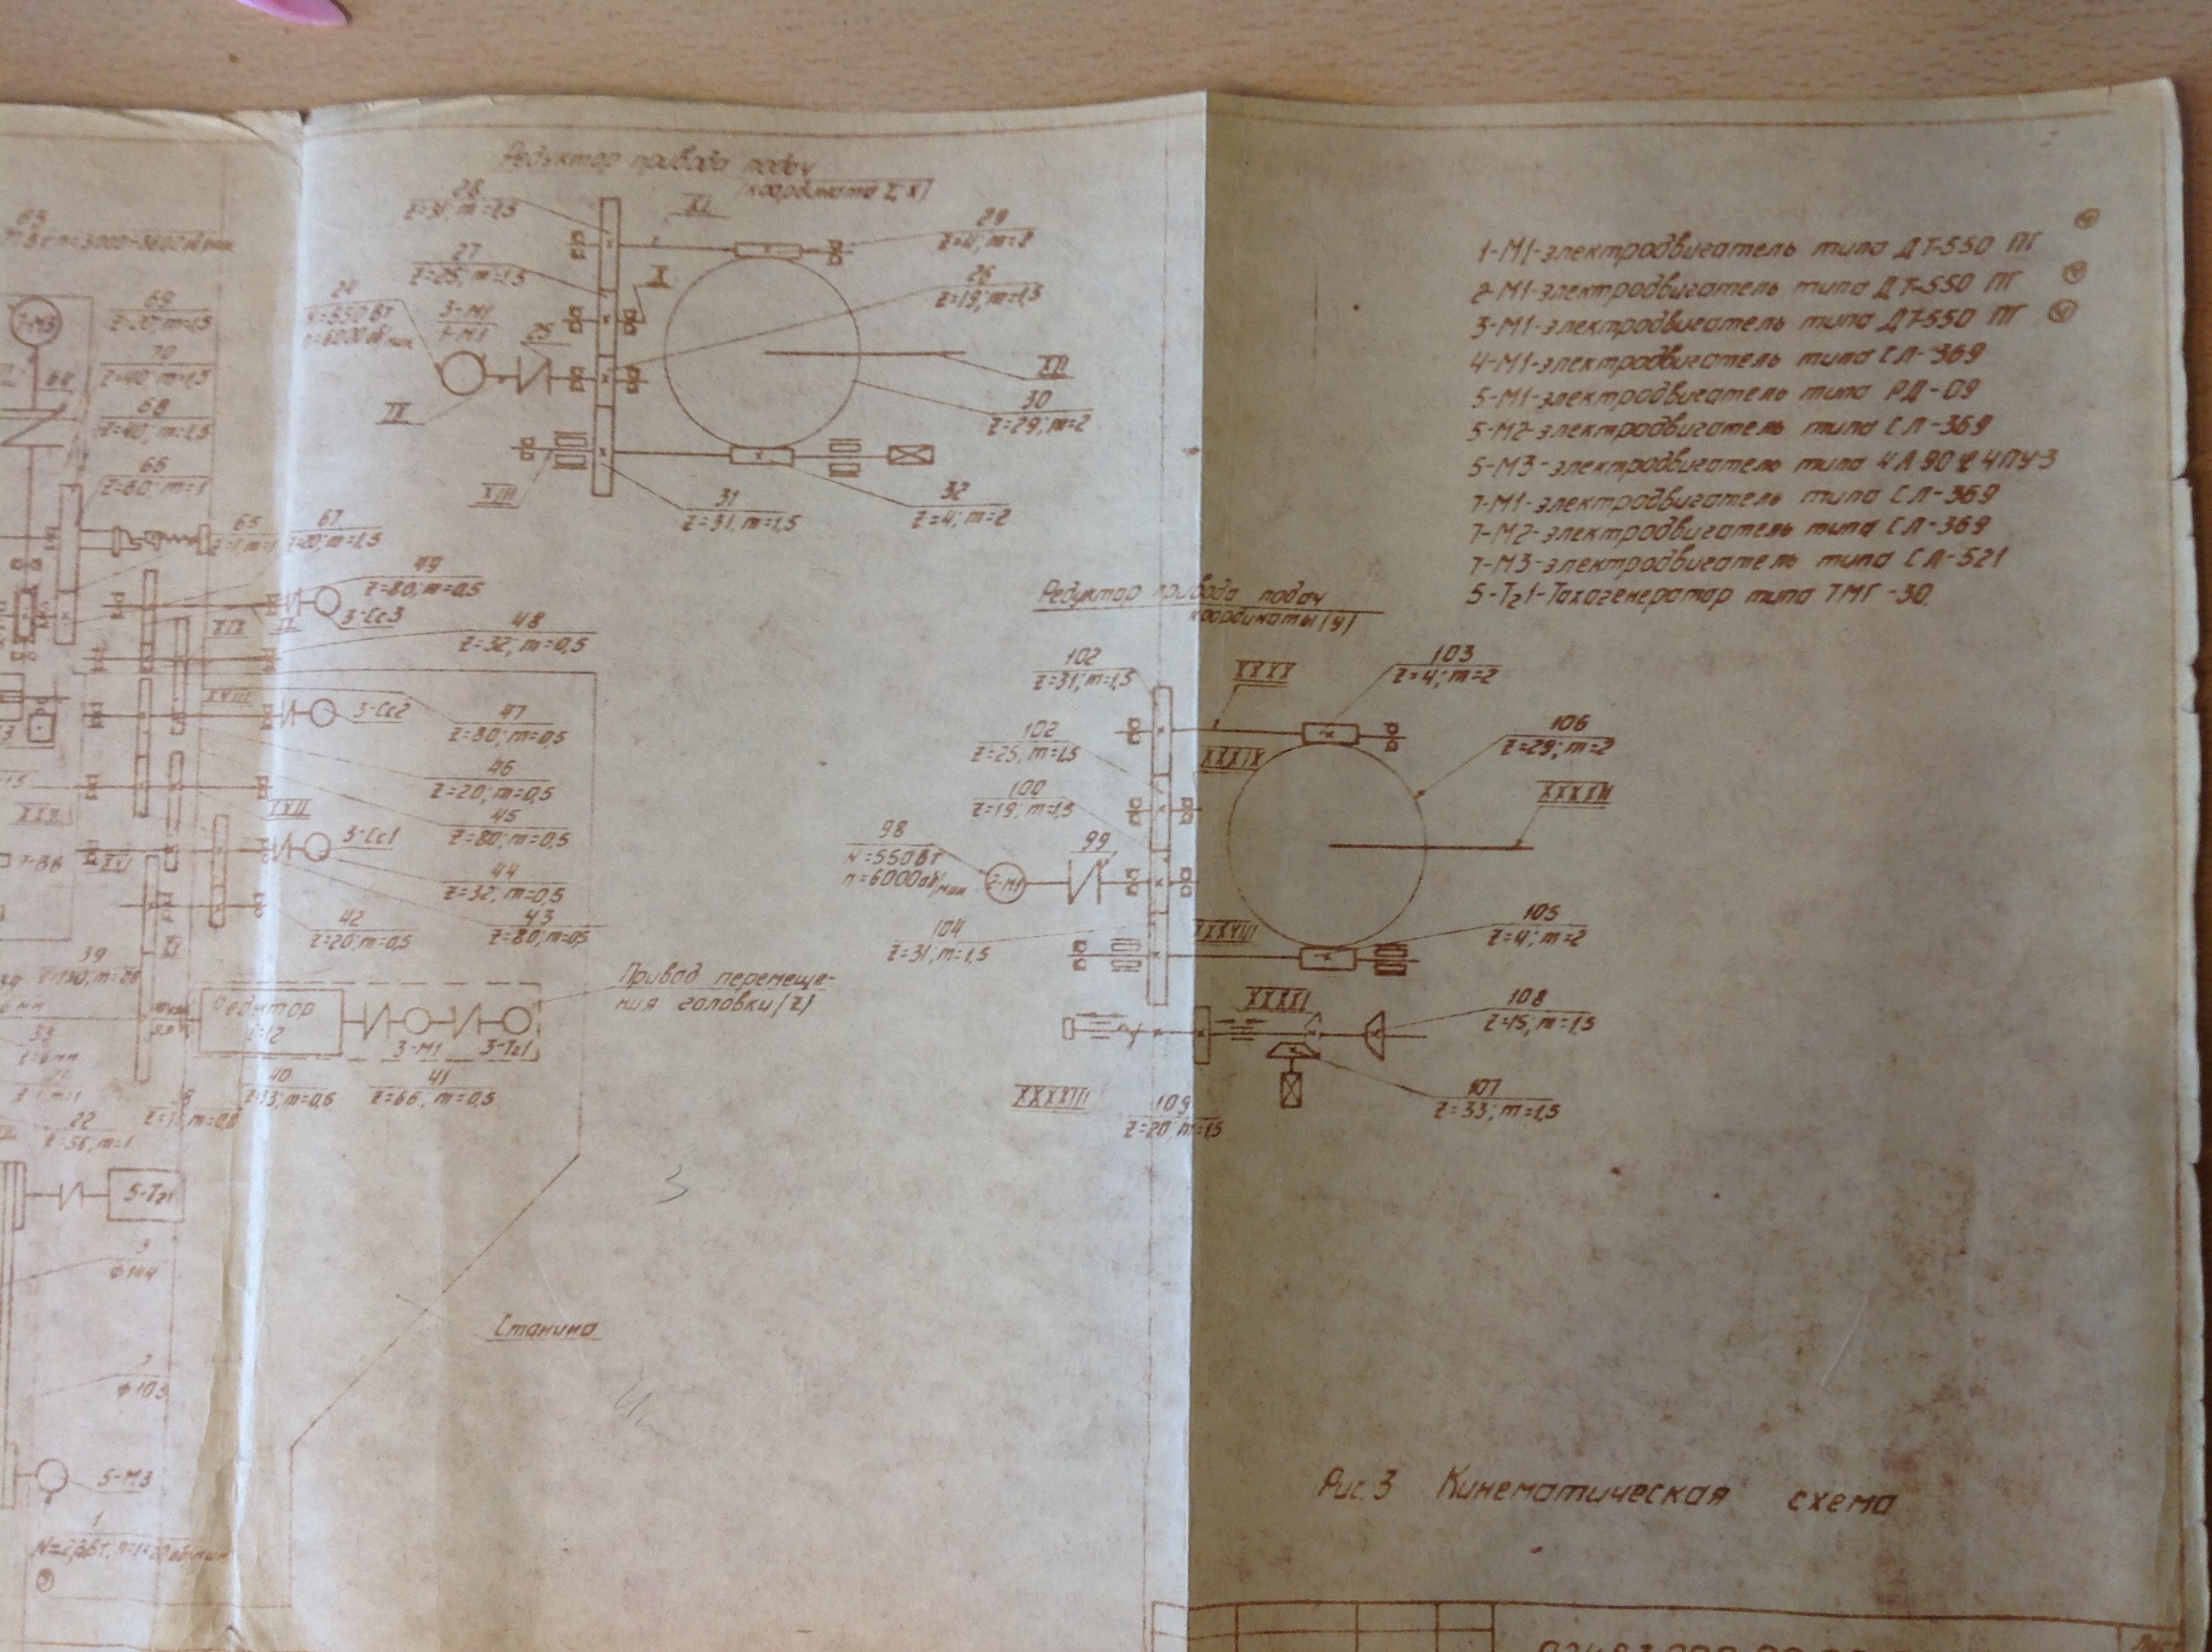 Редуктор привода подач
(координата Z, X)
28
z=31; m=1,5
XI
29
z=4; m=2
27
z=25; m=1,5
X
26
z=19; m=1,5
24
N=550 Вт
n=6000 об/мин
3-М1
1-М1
25
IX
XII
30
z=29; m=2
XIII
31
z=31, m=1,5
32
z=4; m=2
1-М1-электродвигатель типа ДТ-550 ПГ
2-М1-электродвигатель типа ДТ-550 ПГ
3-М1-электродвигатель типа ДТ-550 ПГ
4-М1-электродвигатель типа СЛ-369
5-М1-электродвигатель типа РД-09
5-М2-электродвигатель типа СЛ-369
5-М3-электродвигатель типа 4А90 4ПУ3
7-М1-электродвигатель типа СЛ-369
7-М2-электродвигатель типа СЛ-369
7-М3-электродвигатель типа СЛ-521
5-Тг1-Тахогенератор типа ТМГ-30.
7-М3
69
z=20; m=1,5
70
z=40; m=1,5
68
z=40; m=1,5
66
z=60; m=1
65
67
z=20; m=1,5
49
z=80; m=0,5
3-Сс3
XIX
48
z=32; m=0,5
XVIII
3-Сс2
47
z=80; m=0,5
46
z=20; m=0,5
45
z=80; m=0,5
3-Сс1
44
z=32; m=0,5
XVI
42
z=20; m=0,5
43
z=80; m=0,5
39
Редуктор
i=12
3-М1
3-Тг1
Привод перемеще-
ния головки (z)
40
z=33; m=0,5
41
z=66; m=0,5
22
z=56; m=1
5-Тг1
3
ф144
ф103
5-М3
1
Станина
Редуктор привода подач
координаты (у)
102
z=31; m=1,5
XXXX
103
z=4; m=2
102
z=25, m=1,5
XXXIX
106
z=29; m=2
100
z=19; m=1,5
XXXXII
98
N=550 Вт
n=6000 об/мин
2-М1
99
104
z=31; m=1,5
XXXVIII
105
z=4; m=2
XXXXI
108
z=15, m=1,5
XXXXIII
109
z=20; m=1,5
107
z=33; m=1,5
3
Рис. 3 Кинематическая схема